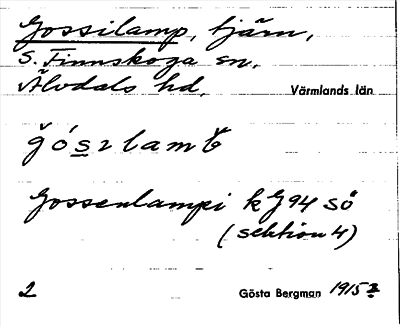 Gossilamp, tjärn,
S. Finnskoga sn.
Älvdals hd.
Värmlands län
Gossenlampi kG94 sö
(sektion 4)
2
Gösta Bergman 1915